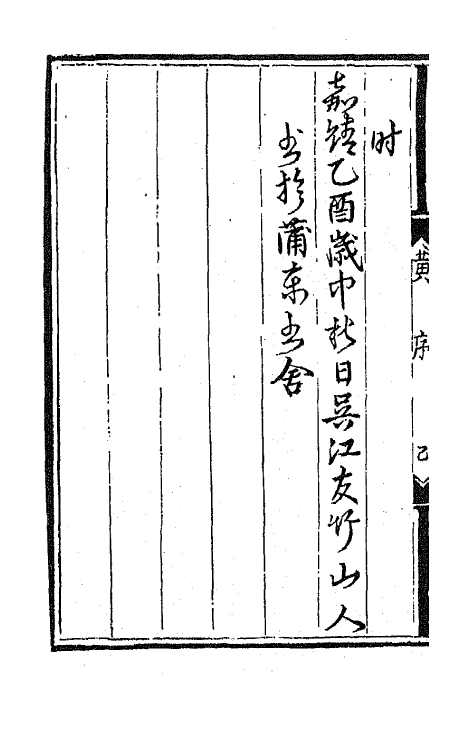 时
嘉靖乙酉歲中秋日吳江友竹山人
书於蒲東书舍
黄序